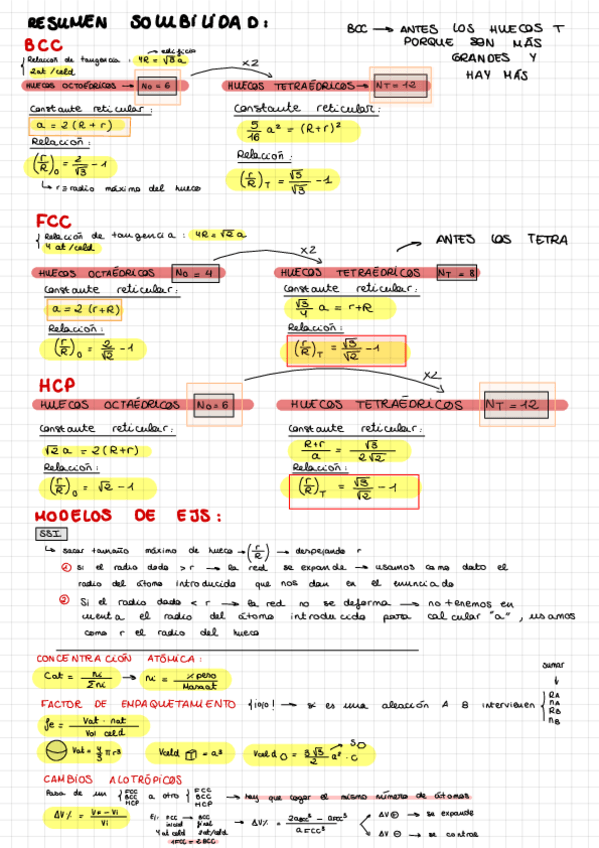 RESUMEN SOLUBILIDAD:
BCC → ANTES LOS HUECOS T
PORQUE SON MÁS
GRANDES Y
HAY MÁS
BCC
Relación de tangencia: 4R = √3 a
2 at/celd
x2
HUECOS OCTAÉDRICOS → No = 6
HUECOS TETRAÉDRICOS → NT = 12
Constante reticular:
a = 2 (R + r)
Relación:
(r/R)o = 2/√3 - 1
↳ r = radio máximo del hueco
Constante reticular:
5/16 a² = (R+r)²
Relación:
(r/R)T = √5/√3 - 1
FCC
Relación de tangencia: 4R = √2 a
4 at/celd
x2
→ ANTES LOS TETRA
HUECOS OCTAÉDRICOS No = 4
HUECOS TETRAÉDRICOS NT = 8
Constante reticular:
a = 2 (r+R)
Relación:
(r/R)o = 2/√2 - 1
Constante reticular:
√3/4 a = r+R
Relación:
(r/R)T = √3/√2 - 1
HCP
x2
HUECOS OCTAÉDRICOS No = 6
HUECOS TETRAÉDRICOS NT = 12
Constante reticular:
√2 a = 2 (R+r)
Relación:
(r/R)o = √2 - 1
Constante reticular:
R+r/a = √3/2√2
Relación:
(r/R)T = √3/√2 - 1
MODELOS DE EJS:
SSI
↳ sacar tamaño máximo de hueco → (r/R) → despejando r
① si el radio dado > r → la red se expande → usamos como dato el
radio del átomo introducido que nos dan en el enunciado
② Si el radio dado < r → la red no se deforma → no tenemos en
cuenta el radio del átomo introducido para calcular "a", usamos
como r el radio del hueco
CONCENTRACIÓN ATÓMICA:
Cat = ni/Σni → ni = x peso/Masaat
sumar
FACTOR DE EMPAQUETAMIENTO ¡ojo! → si es una aleación A B intervienen
RA
nA
RB
nB
fe = Vat · nat/Vol celd
Vat = 4/3 π r³
Vceld = a³
Vceld = 3√3/2 a² · c
CAMBIOS ALOTRÓPICOS
Pasa de un FCC BCC HCP a otro FCC BCC HCP → hay que coger el mismo número de átomos
ΔV% = Vf - Vi/Vi
Ej: FCC → BCC
inicial final
4at celd 2at/celd
1FCC = 2BCC
→ ΔV% = 2aBCC³ - aFCC³/aFCC³
ΔV ⊕ → se expande
ΔV ⊖ → se contrae